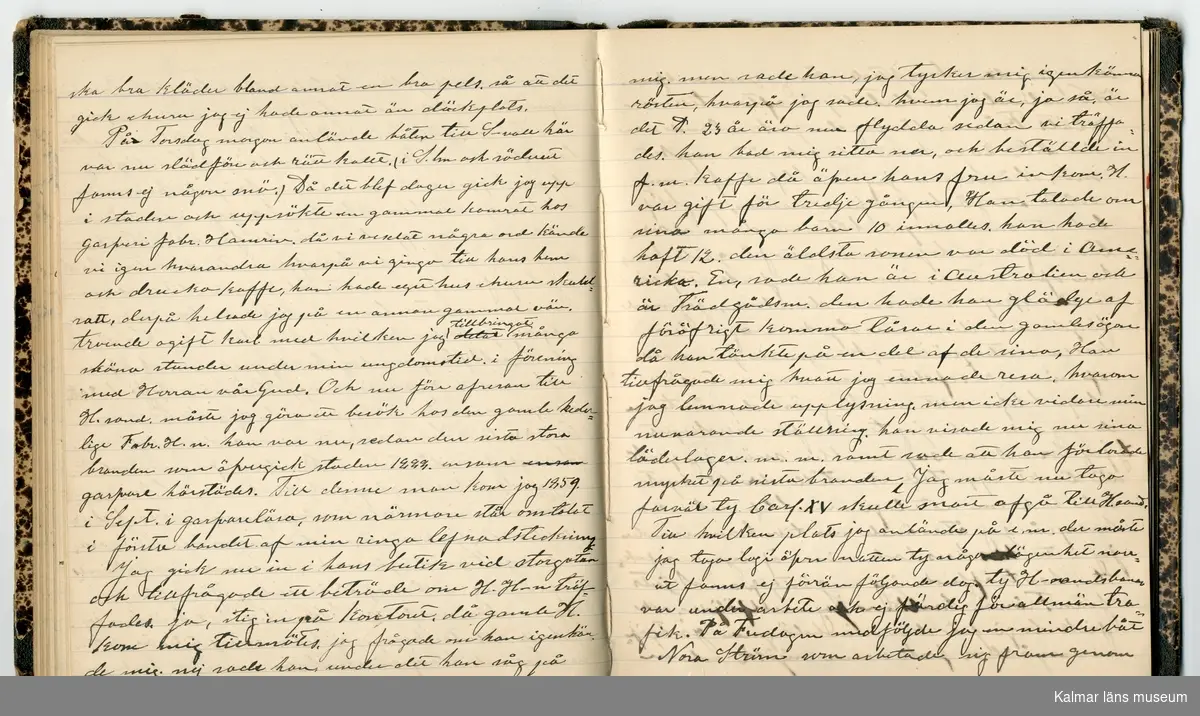 ska bra kläder bland annat en bra pels, så att det
gick ehuru jag ej hade annat än däckplats.
På Torsdag morgon anlände båten till S-vall här
var nu slädföre och rätt kallt. (i S.lm och söderut
fanns ej någon snö.) Då det blef dager gick jag upp
i staden och uppsökte en gammal kamrat hos
garfveri fabr. Hamrin, då vi vexlat några ord kände
vi igen hvarandra hvarpå vi gingo till hans hem
och drucko kaffe, han hade eget hus ehuru skuld-
satt, derpå helsade jag på en annan gammal vän.
troende ogift karl med hvilken jag tillbringat många
sköna stunder under min ungdomstid. i förening
med Herran vår Gud. Och nu före afresan till
H.sand. måste jag göra ett besök hos den gamle heder-
lige Fabr. H-n. han var nu, sedan den sista stora
branden som öfvergick staden 1888. ensam
garfvare härstädes. Till denne man kom jag 1859
i Sept. i garfvarelära, som närmare står omtalat
i förste bandet af min ringa lefnadsteckning
Jag gick nu in i hans butik vid storgatan
och tillfrågade ett beträde om H. H-n träf-
fades. ja, stig in på Kontoret, då gamle H.
kom mig till mötes, jag frågade om han igenkän-
de mig. nej sade han, under det han såg på
mig, men sade han, jag tycker mig igenkänna
rösten, hvarpå jag sade. hvem jag är, ja så, är
det P. 23 år äro nu flydda sedan vi träffa-
des. han bad mig sitta ner, och beställde in
f.m. Kaffe då äfven hans fru inkom. H.
var gift för tredje gången, Han talade om
sina många barn 10 inalles. han hade
haft 12. den äldsta sonen var död i Ame-
ricka. En, sade han är i Australien och
är Trädgådsm. den hade han glädje af
föröfrigt komma tårar i den gamles ögon
då han tänkte på en del af de sina, Han
tillfrågade mig hvart jag ernade resa, hvarom
jag lemnade upplysning, men icke vidare min
nuvarande ställning. han visade mig nu sina
läderlager. m. m. samt sade att han förlorade
mycket på sista branden, Jag måste nu taga
farväl ty Carl XV skulle snart afgå till H.sand.
Till hvilken plats jag anlände på e.m. der måste
jag taga logi öfver natten ty någon lägenhet norr-
ut fanns ej förrän följande dag, ty H-sandsbanan
var under arbete och ej färdig för allmän tra-
fik. På Fredagen medföljde jag en mindre båt
Nora Ström som arbetade sig fram genom
Kalmar läns museum